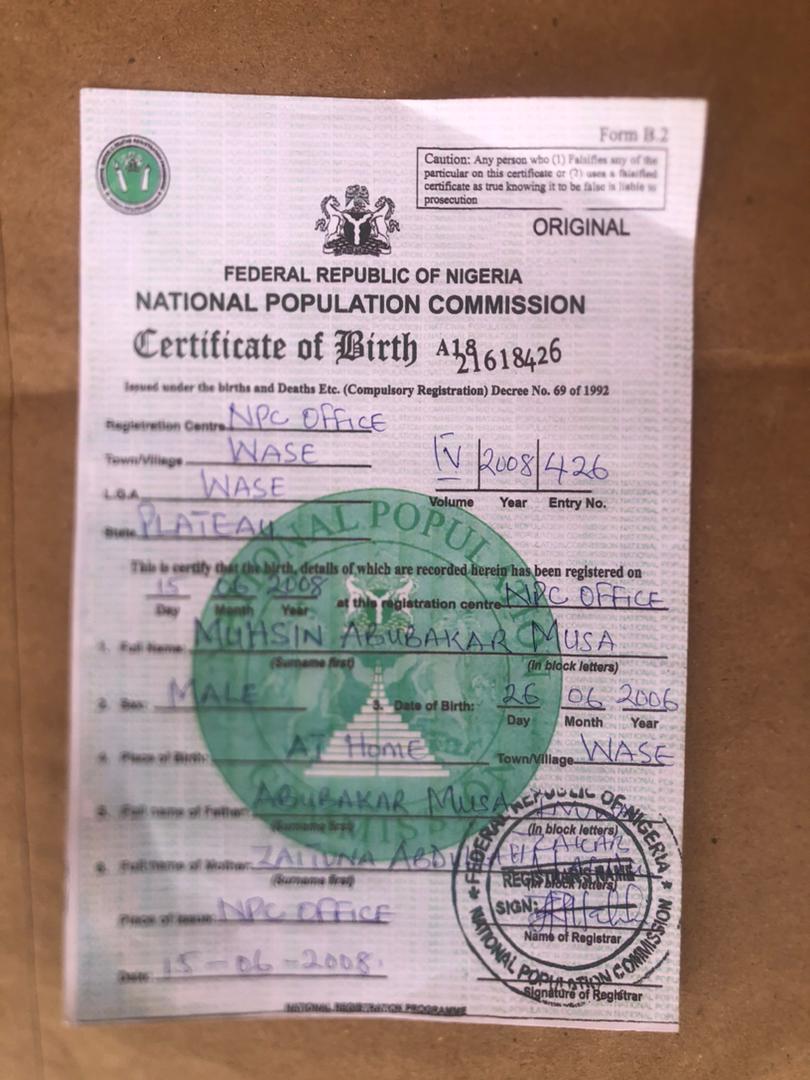 Form B.2
Caution: Any person who (1) Falsifies any of the
particular on this certificate or (2) uses a falsified
certificate as true knowing it to be false is liable to
prosecution
ORIGINAL
FEDERAL REPUBLIC OF NIGERIA
NATIONAL POPULATION COMMISSION
Certificate of Birth A18 21618426
Issued under the births and Deaths Etc. (Compulsory Registration) Decree No. 69 of 1992
Registration Centre NPC OFFICE
Town/Village WASE
IV 2008 426
L.G.A. WASE
Volume Year Entry No.
State PLATEAU
This is certify that the birth, details of which are recorded herein has been registered on
15 06 2008 at this registration centre NPC OFFICE
Day Month Year
1. Full Name: MUHSIN ABUBAKAR MUSA
(Surname first) (in block letters)
2. Sex: MALE 3. Date of Birth: 26 06 2006
Day Month Year
4. Place of Birth: AT Home Town/Village WASE
5. Full name of Father: ABUBAKAR MUSA
(Surname first) (in block letters)
6. Full name of Mother: ZAITUNA
(Surname first) (in block letters)
Place of Issue: NPC OFFICE
Name of Registrar
Date: 15-06-2008
Signature of Registrar
NATIONAL REGISTRATION PROGRAMME
FEDERAL REPUBLIC OF NIGERIA
REGISTRARS NAME
SIGN:
NATIONAL POPULATION COMMISSION